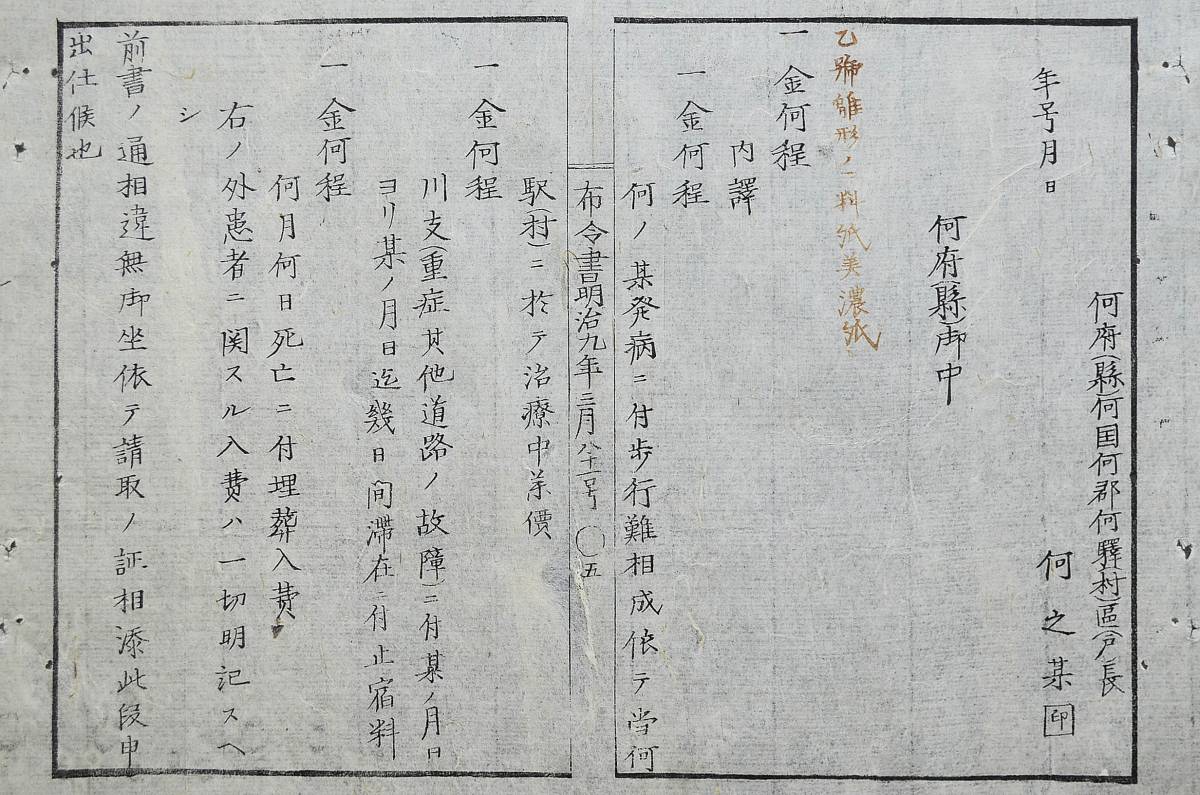 何府(縣)何国何郡何驛(村)區(戸)長
年号月日　何之某 印
何府(縣)御中
乙號雛形ノ一料紙美濃紙
一金何程
内譯
一金何程
何ノ某発病ニ付歩行難相成依テ当何
布令書明治九年三月八十一号 〇五
駅(村)ニ於テ治療中薬價
一金何程
川支(重症其他道路ノ故障)ニ付某ノ月日
ヨリ某ノ月日迄幾日間滞在ニ付止宿料
一金何程
何月何日死亡ニ付埋葬入費
右ノ外患者ニ関スル入費ハ一切明記スヘ
シ
前書ノ通相違無御坐依テ請取ノ証相添此段申
出仕候也